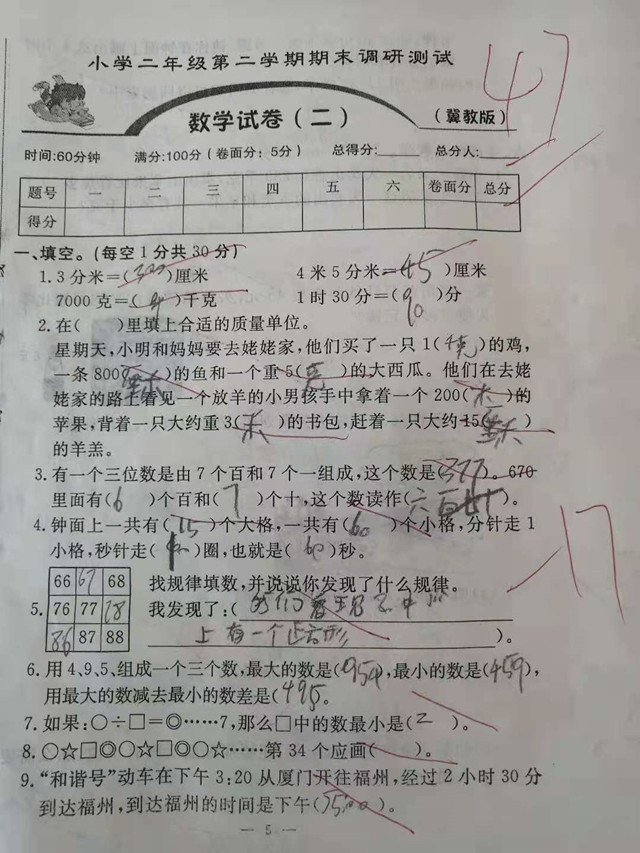 小学二年级第二学期期末调研测试
47
数学试卷(二)
(冀教版)
时间:60分钟 满分:100分(卷面分:5分) 总得分:____ 总分人:____
题号 一 二 三 四 五 六 卷面分 总分
得分
一、填空。(每空1分共30分)
1. 3分米=(300)厘米 4米5分米=(45)厘米
7000克=( )千克 1时30分=(90)分
2. 在( )里填上合适的质量单位。
星期天,小明和妈妈要去姥姥家,他们买了一只1(千克)的鸡,
一条800( )的鱼和一个重5(克)的大西瓜。他们在去姥
姥家的路上看见一个放羊的小男孩手中拿着一个200(米)的
苹果,背着一只大约重3(米)的书包,赶着一只大约15( )
的羊羔。
3. 有一个三位数是由7个百和7个一组成,这个数是(377)。670
里面有(6)个百和(7)个十,这个数读作(六百 )。
4. 钟面上一共有(15)个大格,一共有(60)个小格,分针走1
小格,秒针走( )圈,也就是(60)秒。
66 67 68
76 77 78
86 87 88
5.
找规律填数,并说说你发现了什么规律。
我发现了:(我们 中
上有一个正方形)。
6. 用4、9、5、组成一个三个数,最大的数是(954),最小的数是(459),
用最大的数减去最小的数差是(495)。
-17
7. 如果:○÷□=◎……7,那么□中的数最小是(2)。
8. ○☆□◎○☆□◎○☆……第34个应画( )。
9. “和谐号”动车在下午3:20从厦门开往福州,经过2小时30分
到达福州,到达福州的时间是下午( )。
— 5 —